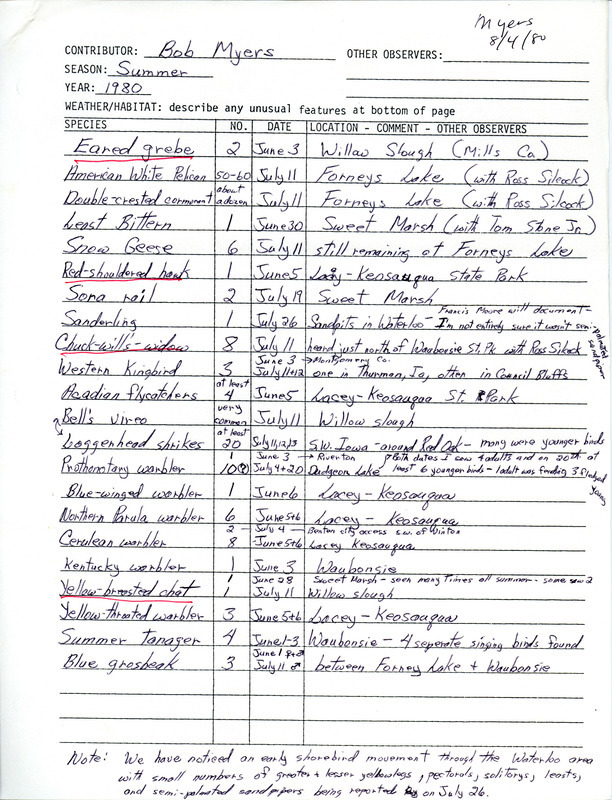 Myers
8/4/80
CONTRIBUTOR: Bob Myers OTHER OBSERVERS:
SEASON: Summer
YEAR: 1980
WEATHER/HABITAT: describe any unusual features at bottom of page
SPECIES NO. DATE LOCATION - COMMENT - OTHER OBSERVERS
Eared grebe 2 June 3 Willow Slough (Mills Co.)
American White Pelican 50-60 July 11 Forneys Lake (with Ross Silcock)
Double-crested cormorant about a dozen July 11 Forneys Lake (with Ross Silcock)
Least Bittern 1 June 30 Sweet Marsh (with Tom Stone Jr.)
Snow Geese 6 July 11 still remaining at Forneys Lake
Red-shouldered hawk 1 June 5 Lacey-Keosauqua State Park
Sora rail 2 July 19 Sweet Marsh
Sanderling 1 July 26 Sandpits in Waterloo - Francis Moore will document - I'm not entirely sure it wasn't semi-palmated sandpiper
Chuck-wills-widow 8 July 11 heard just north of Waubonsie St. Pk with Ross Silcock
June 3 → Montgomery Co.
Western Kingbird 3 July 11+12 one in Thurman, Ia, other in Council Bluffs
Acadian flycatchers at least 4 June 5 Lacey-Keosauqua St. Park
Bell's vireo very common July 11 Willow slough
Loggerhead shrikes at least 20 July 11,12,13 S.W. Iowa - around Red Oak - many were younger birds
1 June 3 → Riverton
Prothonotary warbler 10(?) July 4+20 Dudgeon Lake Both dates I saw 4 adults and on 20th at least 6 younger birds - 1 adult was feeding 3 fledged young
Blue-winged warbler 1 June 6 Lacey-Keosauqua
Northern Parula warbler 6 June 5+6 Lacey-Keosauqua
2 - July 4 - Benton city access s.w. of Vinton
Cerulean warbler 8 June 5+6 Lacey Keosauqua
Kentucky warbler 1 June 3 Waubonsie
1 June 28 Sweet Marsh - seen many times all summer - some saw 2
Yellow-breasted chat 1 July 11 Willow slough
Yellow-throated warbler 3 June 5+6 Lacey-Keosauqua
Summer tanager 4 June 1-3 Waubonsie - 4 seperate singing birds found
June 1 ♀+♂
Blue grosbeak 3 July 11 ♂ between Forney Lake + Waubonsie
Note: We have noticed an early shorebird movement through the Waterloo area
with small numbers of greater + lesser yellowlegs, pectorals, solitarys, leasts,
and semi-palmated sandpipers being reported on July 26.